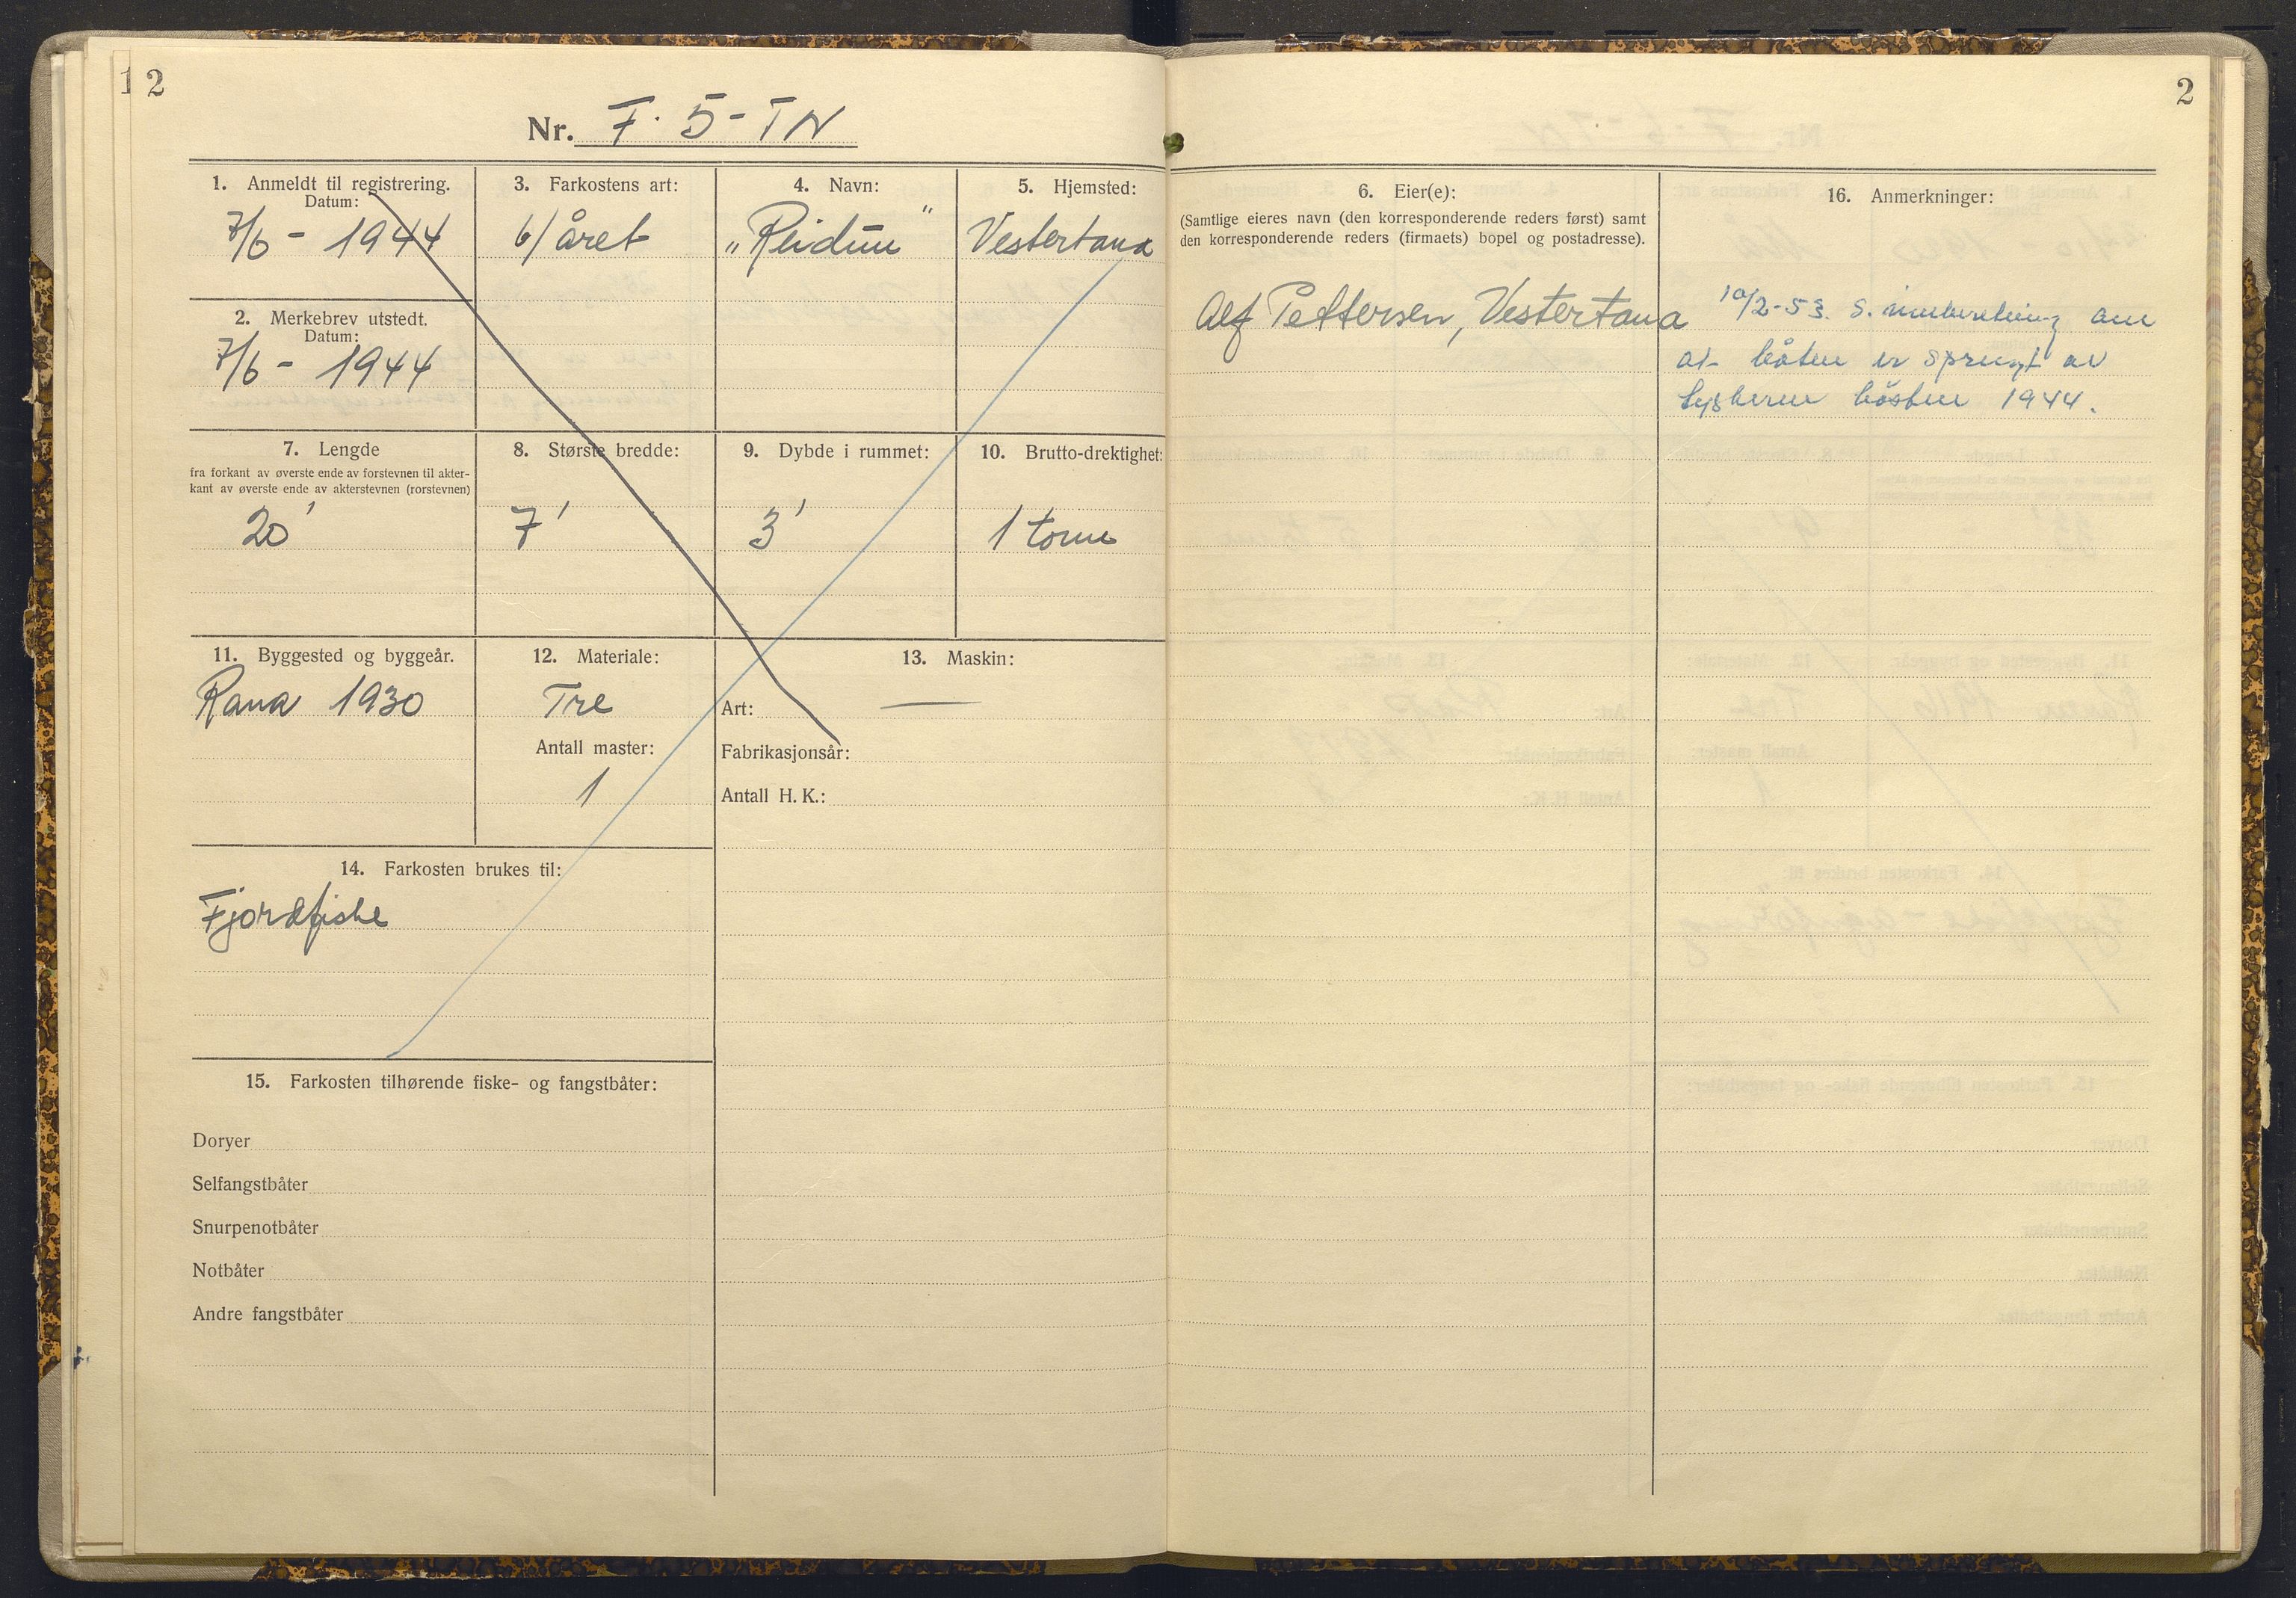 12
Nr. F. 5 - TN
1. Anmeldt til registrering.
Datum:
7/6 - 1944
2. Merkebrev utstedt.
Datum:
7/6 - 1944
3. Farkostens art:
6/året
4. Navn:
„Reidun"
5. Hjemsted:
Vestertana
7. Lengde
fra forkant av øverste ende av forstevnen til akter-
kant av øverste ende av akterstevnen (rorstevnen)
20'
8. Største bredde:
7'
9. Dybde i rummet:
3'
10. Brutto-drektighet:
1 tonn
11. Byggested og byggeår.
Rana 1930
12. Materiale:
Tre
Antall master:
1
13. Maskin:
Art: —
Fabrikasjonsår:
Antall H. K.:
14. Farkosten brukes til:
Fjordfiske
15. Farkosten tilhørende fiske- og fangstbåter:
Doryer
Selfangstbåter
Snurpenotbåter
Notbåter
Andre fangstbåter
2
6. Eier(e):
(Samtlige eieres navn (den korresponderende reders først) samt
den korresponderende reders (firmaets) bopel og postadresse).
Alf Pettersen, Vestertana
16. Anmerkninger:
10/2-53. S. innberetning om
at båten er sprengt av
tyskerne hösten 1944.